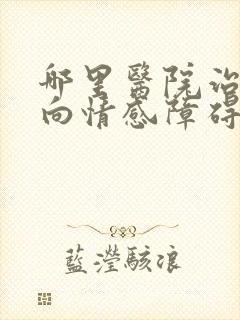 哪里醫院治
向情感障碍
藍瀅駭浪